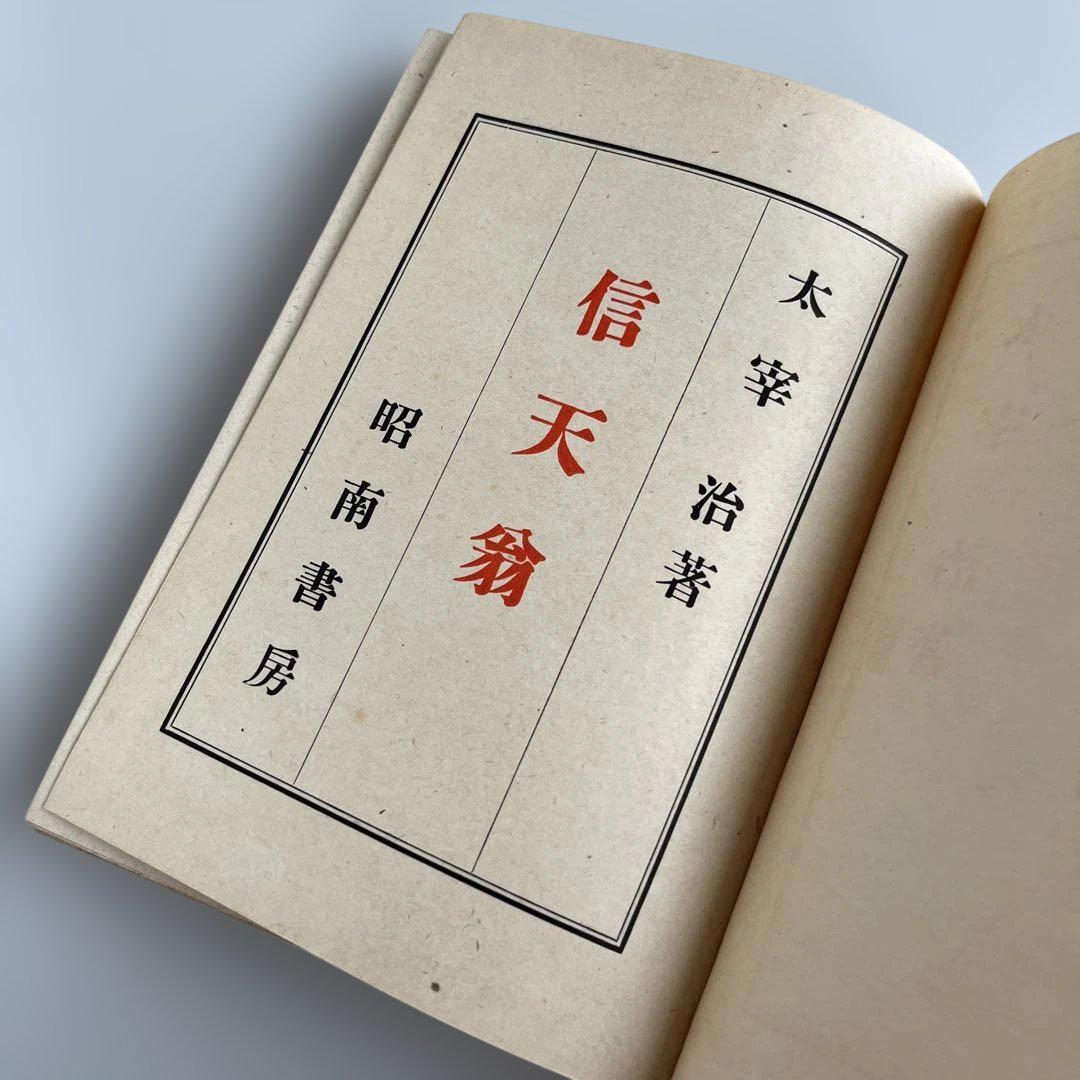 太宰治著
信天翁
昭南書房